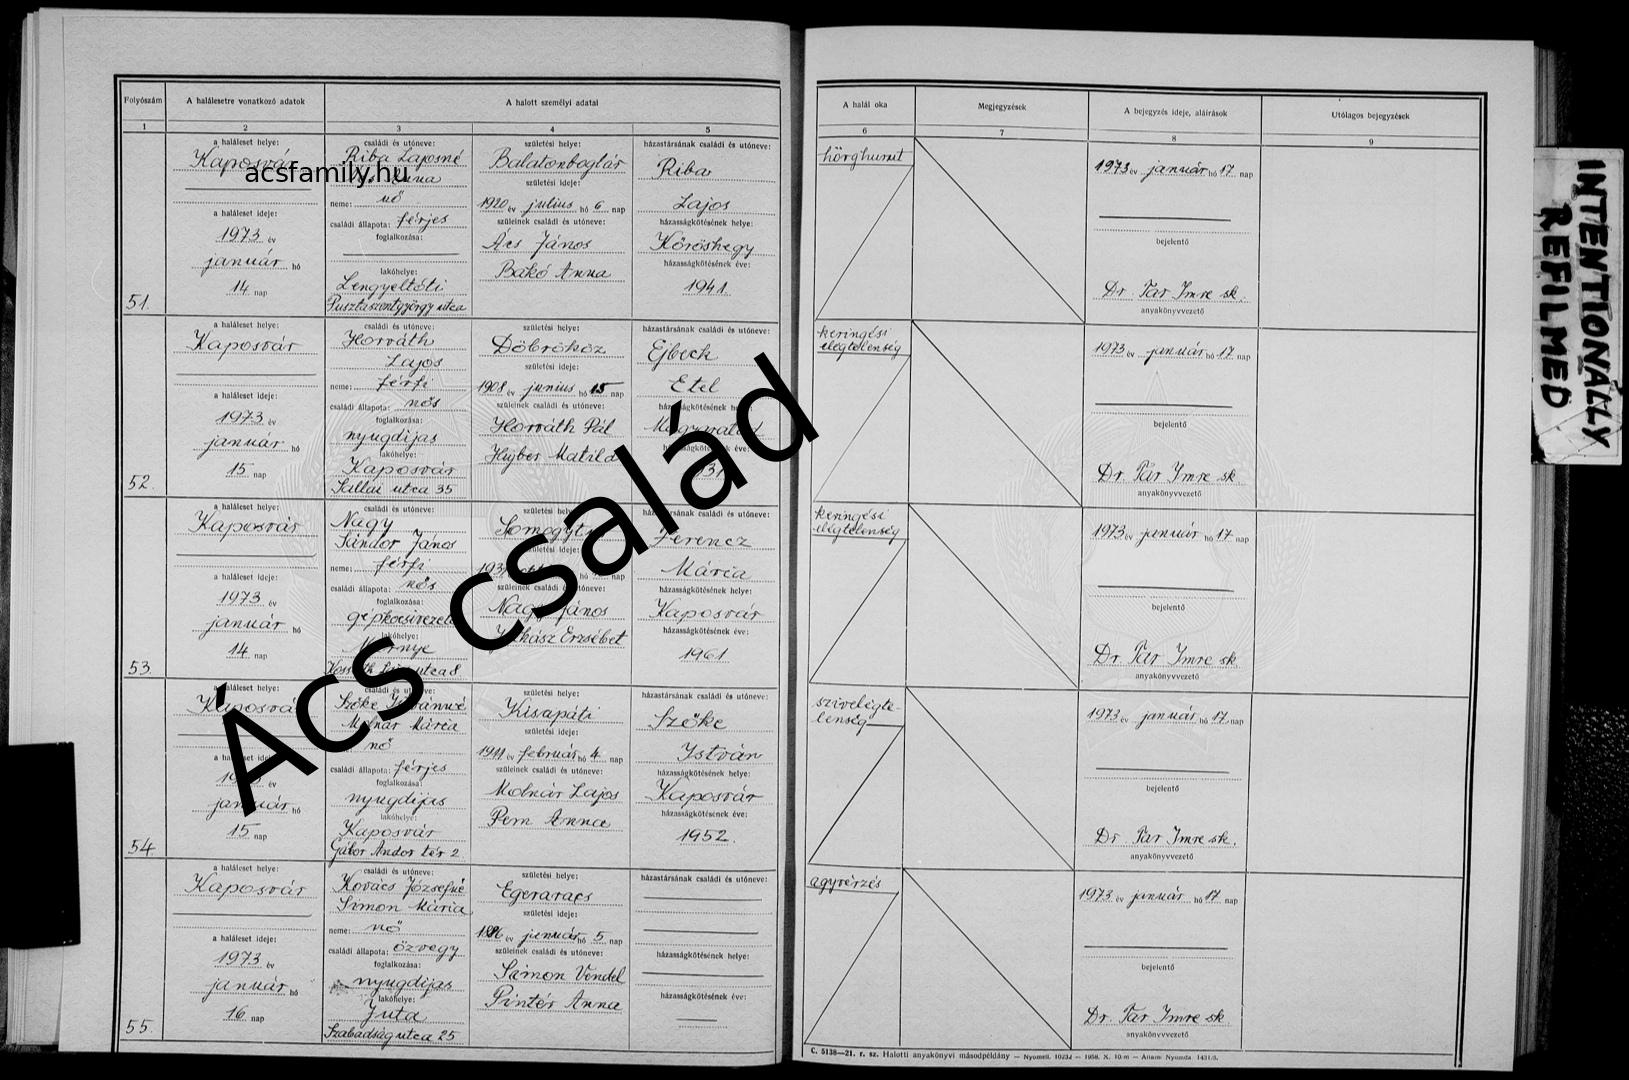 Folyószám
A halálesetre vonatkozó adatok
A halott személyi adatai
1
2
3
4
5
a haláleset helye:
Kaposvár
a haláleset ideje:
1973 év
január hó
14 nap
51.
családi és utóneve:
Riba Lajosné
Anna
neme: nő
családi állapota: férjes
foglalkozása:
lakóhelye:
Lengyeltóti
Pusztaszentgyörgy utca
születési helye:
Balatonboglár
születési ideje:
1920 év julius hó 6 nap
szüleinek családi és utóneve:
Ács János
Bakó Anna
házastársának családi és utóneve:
Riba
Lajos
házasságkötésének helye:
Kőröshegy
házasságkötésének éve:
1941
a haláleset helye:
Kaposvár
a haláleset ideje:
1973 év
január hó
15 nap
52.
családi és utóneve:
Horváth
Lajos
neme: férfi
családi állapota: nős
foglalkozása:
nyugdíjas
lakóhelye:
Kaposvár
Sallai utca 35
születési helye:
Döbrököz
születési ideje:
1908 év junius hó 15 nap
szüleinek családi és utóneve:
Horváth Pál
Matild
házastársának családi és utóneve:
Ejbeck
Etel
a haláleset helye:
Kaposvár
a haláleset ideje:
1973 év
január hó
14 nap
53.
családi és utóneve:
Nagy
Sándor János
neme: férfi
családi állapota: nős
foglalkozása:
gépkocsivezető
lakóhelye:
születési helye:
születési ideje:
hó nap
szüleinek családi és utóneve:
Nagy János
Juhász Erzsébet
házastársának családi és utóneve:
Ferencz
Mária
házasságkötésének helye:
Kaposvár
házasságkötésének éve:
1961
a haláleset helye:
Kaposvár
a haláleset ideje:
év
január hó
15 nap
54.
családi és utóneve:
Szőke Istvánné
Molnár Mária
nő
családi állapota: férjes
foglalkozása:
nyugdíjas
lakóhelye:
Kaposvár
Gábor Andor tér 2
születési helye:
Kisapáti
születési ideje:
1911 év február hó 4 nap
szüleinek családi és utóneve:
Molnár Lajos
Pem Anna
házastársának családi és utóneve:
Szőke
István
házasságkötésének helye:
Kaposvár
házasságkötésének éve:
1952.
a haláleset helye:
Kaposvár
a haláleset ideje:
1973 év
január hó
16 nap
55.
családi és utóneve:
Kovács Józsefné
Simon Mária
neme: nő
családi állapota: özvegy
foglalkozása:
nyugdíjas
lakóhelye:
Juta
Szabadság utca 25
születési helye:
Egeraracs
születési ideje:
év január hó 5 nap
szüleinek családi és utóneve:
Simon Vendel
Pintér Anna
házastársának családi és utóneve:
házasságkötésének helye:
házasságkötésének éve:
A halál oka
Megjegyzések
A bejegyzés ideje, aláírások
Utólagos bejegyzések
6
7
8
9
hörghurut
1973 év január hó 17 nap
bejelentő
Dr. Tar Imre sk.
anyakönyvvezető
keringési
elégtelenség
1973 év január hó 17 nap
bejelentő
Dr. Tar Imre sk.
anyakönyvvezető
keringési
elégtelenség
1973 év január hó 17 nap
bejelentő
Dr. Tar Imre sk
anyakönyvvezető
szívelégte-
lenség
1973 év január hó 17 nap
bejelentő
Dr. Tar Imre sk.
anyakönyvvezető
agyvérzés
1973 év január hó 17 nap
bejelentő
Dr. Tar Imre sk
anyakönyvvezető
C. 5138—21. r. sz. Halotti anyakönyvi másodpéldány — Nyomell. 10232 — 1968. X. 10 m — Állami Nyomda
INTENTIONALLY
REFILMED
acsfamily.hu
Ács család